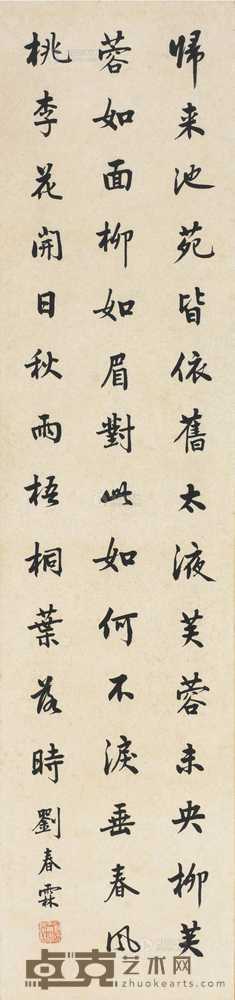 歸来池苑皆依舊太液芙蓉未央柳芙
蓉如面柳如眉對此如何不淚垂春風
桃李花開日秋雨梧桐葉落時劉春霖
卓克艺术网
www.zhuokearts.com